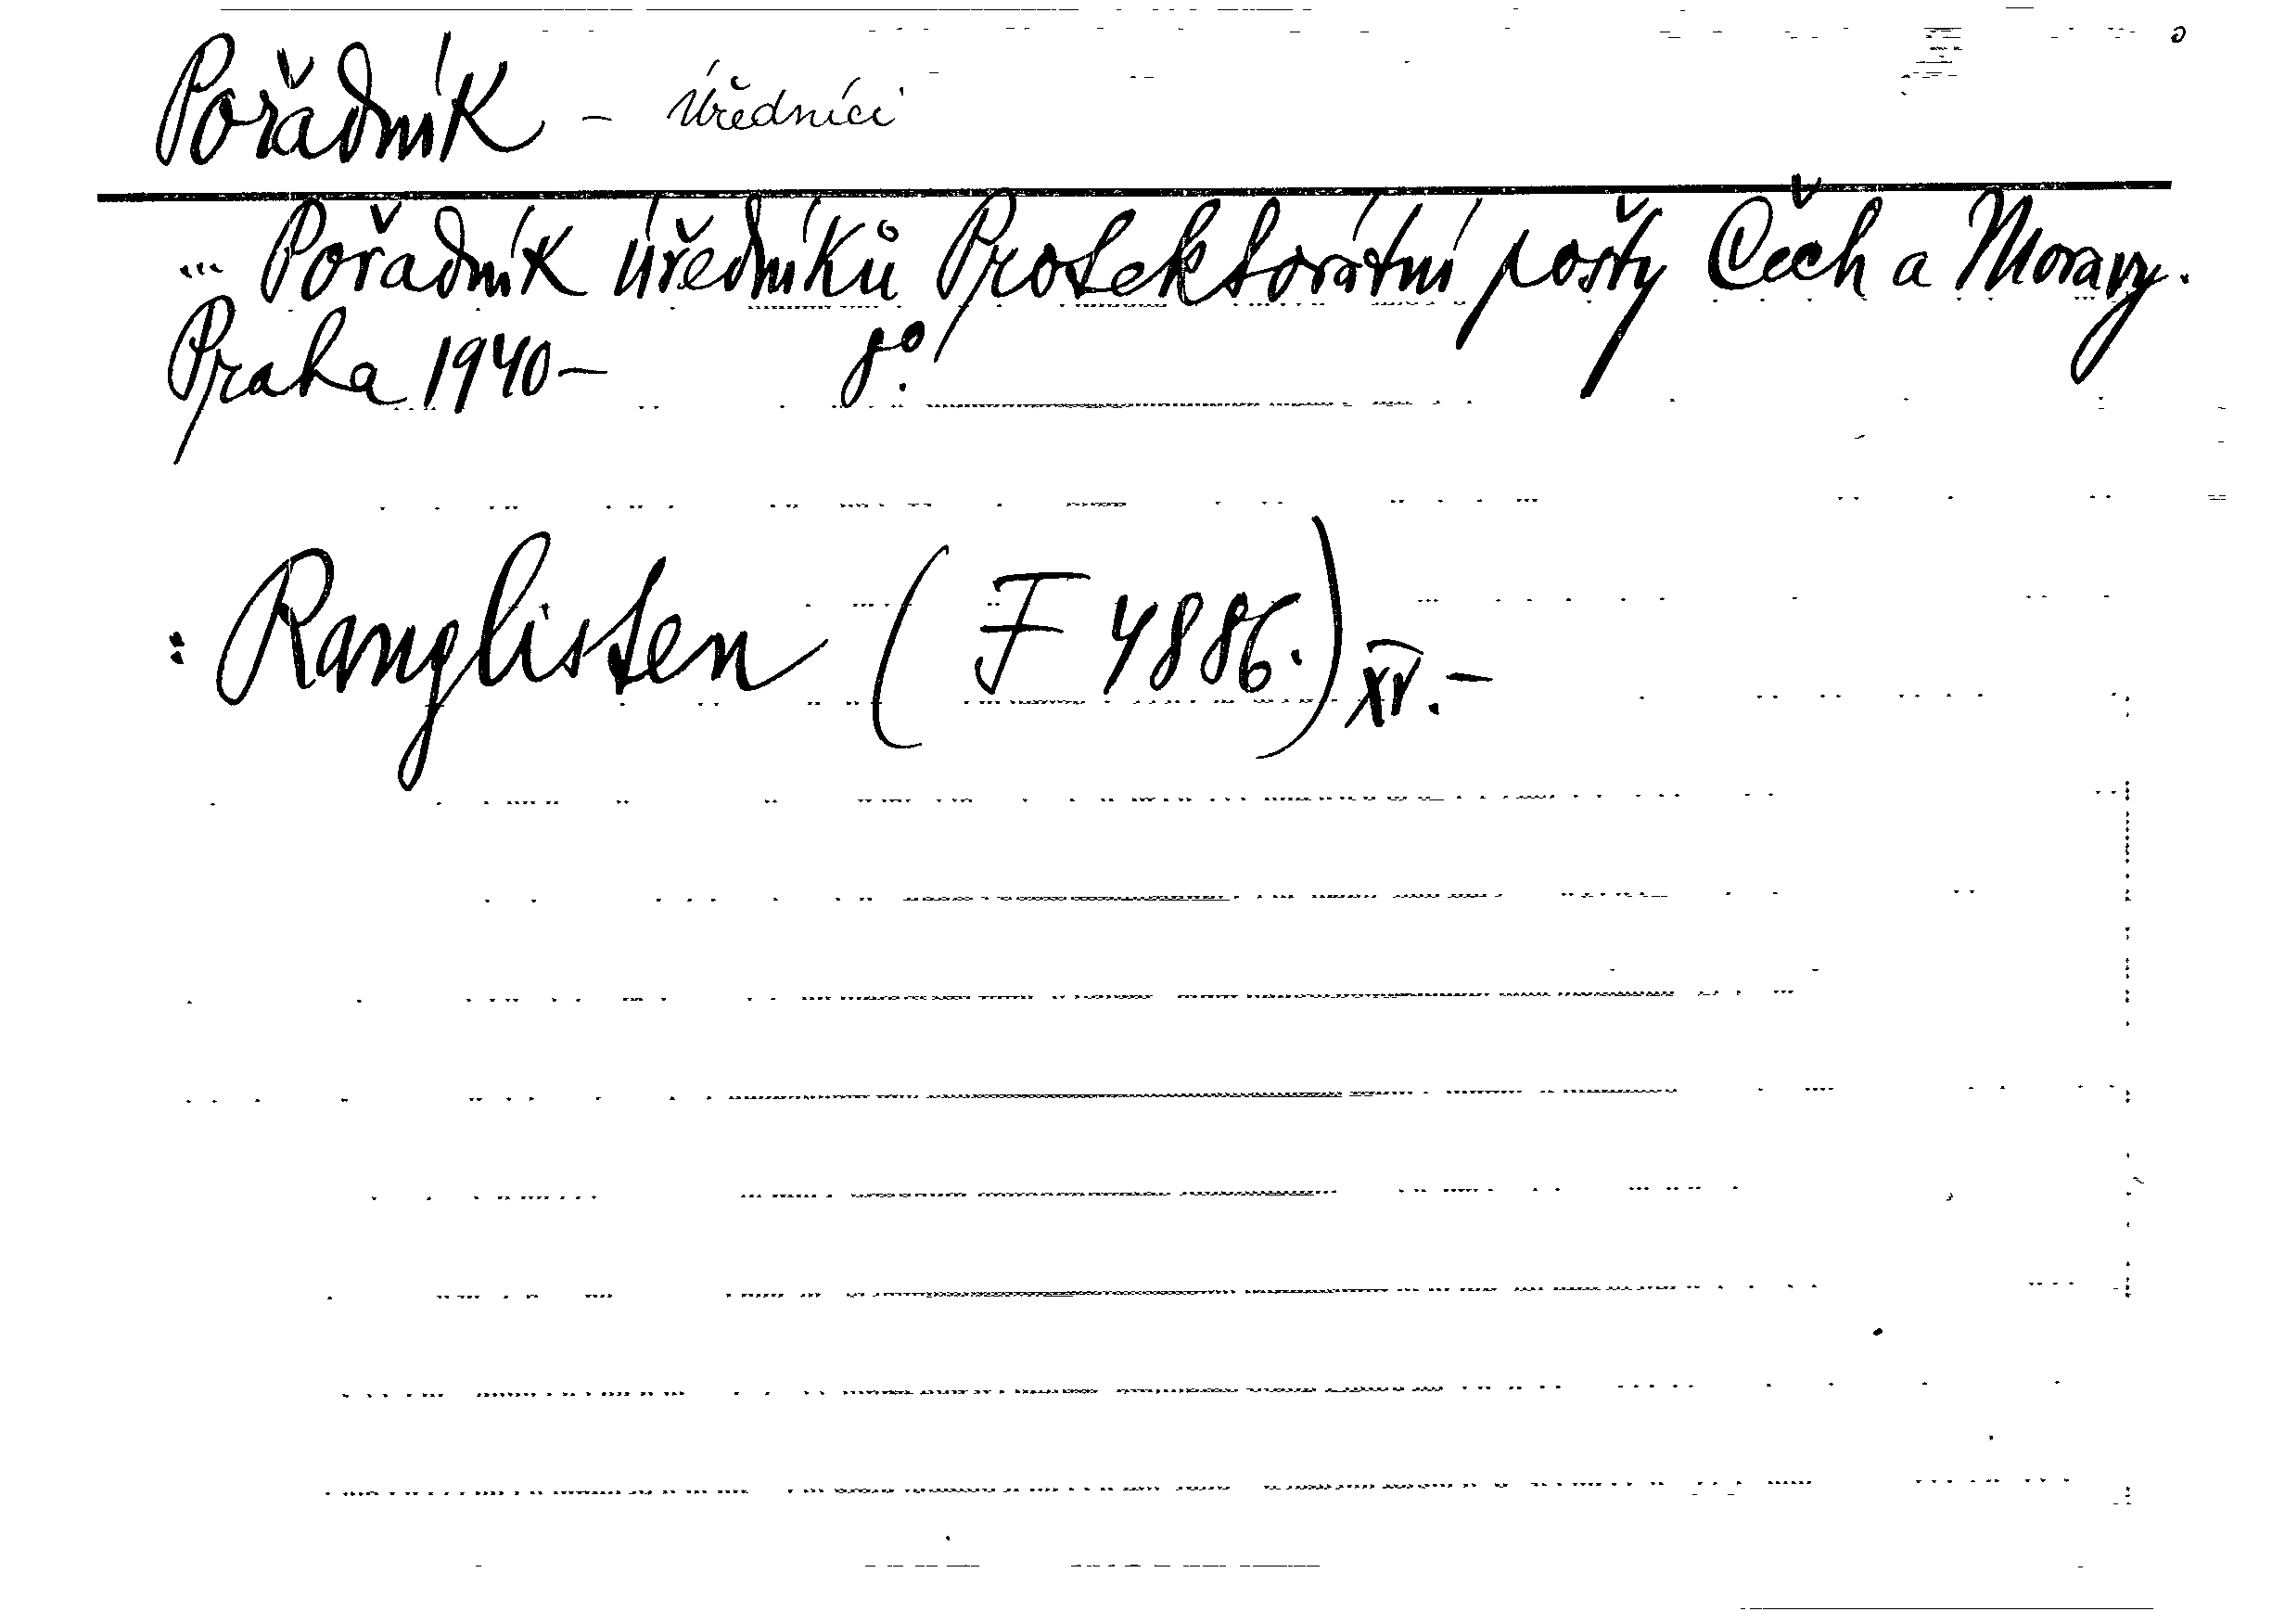 Pořadník - úředníci
... Pořadník úředníků Protektorátní pošty Čech a Moravy.
Praha 1940- 8°.
: Ranglisten (F 4886.) XV.-